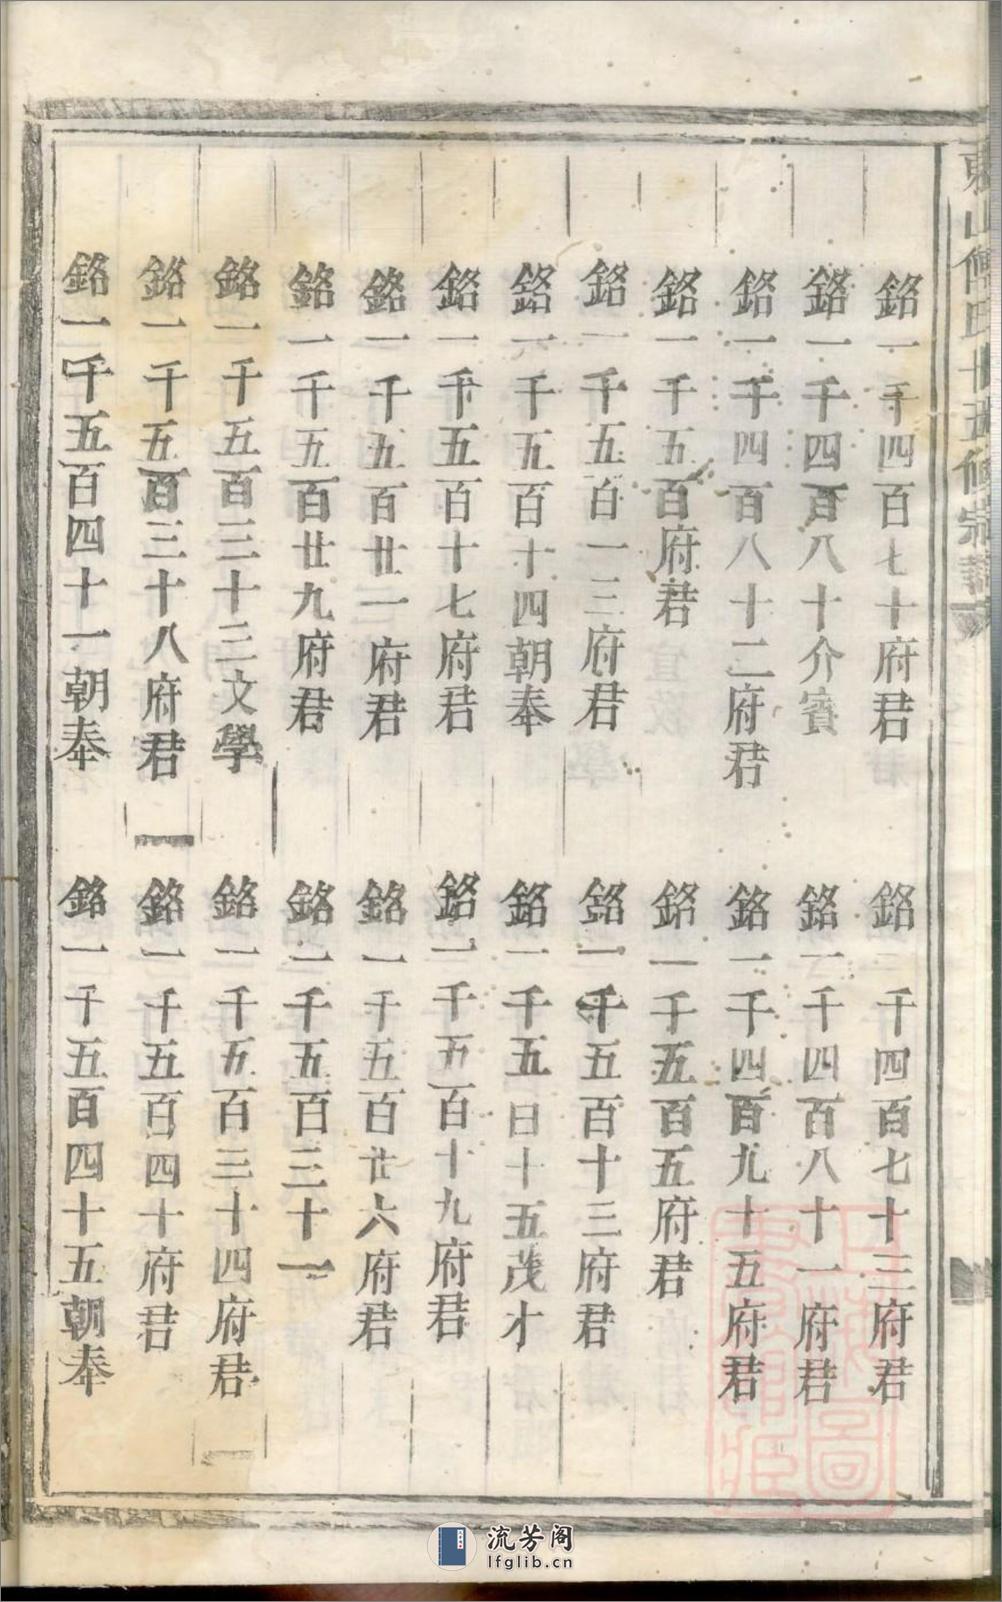 東山氏十五修宗譜
銘一千四百七十府君
銘一千四百七十三府君
銘一千四百八十介賓
銘一千四百八十一府君
銘一千四百八十二府君
銘一千四百九十五府君
銘一千五百府君
銘一千五百五府君
銘一千五百一三府君
銘一千五百十三府君
銘一千五百十四朝奉
銘一千五百十五茂才
銘一千五百十七府君
銘一千五百十九府君
銘一千五百廿一府君
銘一千五百廿六府君
銘一千五百廿九府君
銘一千五百三十一
銘一千五百三十三文學
銘一千五百三十四府君
銘一千五百三十八府君
銘一千五百四十府君
銘一千五百四十一朝奉
銘一千五百四十五朝奉
上海圖書館藏
流芳阁
lfglib.cn